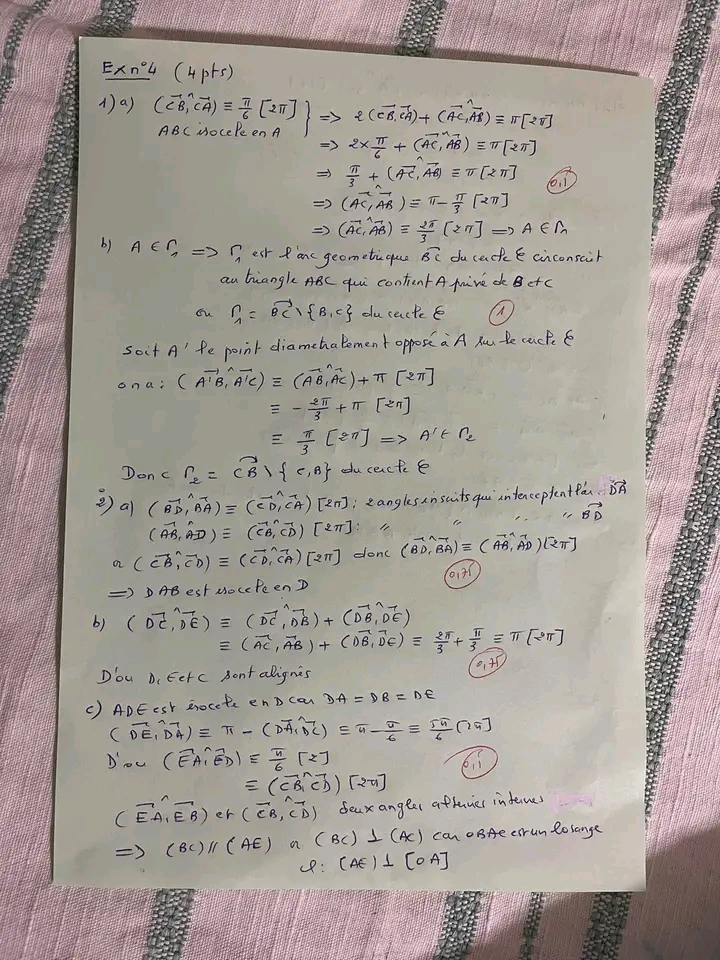 Ex n°4 (4 pts)
1) a) (CB⃗,^CA⃗) ≡ π/6 [2π] } => 2(CB⃗,CA⃗) + (AC⃗,^AB⃗) ≡ π [2π]
ABC isocele en A => 2×π/6 + (AC⃗,^AB⃗) ≡ π [2π]
=> π/3 + (AC⃗,^AB⃗) ≡ π [2π]
=> (AC⃗,^AB⃗) ≡ π - π/3 [2π]
=> (AC⃗,^AB⃗) ≡ 2π/3 [2π] => A ∈ Γ1
b) A ∈ Γ1 => Γ1 est l'arc geometrique BC du cercle ℰ circonscrit
au triangle ABC qui contient A privé de B et C
ou Γ1 = BC \ {B,C} du cercle ℰ
1
Soit A' le point diametralement opposé à A sur le cercle ℰ
on a : (A'B⃗,^A'C⃗) ≡ (AB⃗,^AC⃗) + π [2π]
≡ -2π/3 + π [2π]
≡ π/3 [2π] => A' ∈ Γ2
Donc Γ2 = CB \ {C,B} du cercle ℰ
2) a) (BD⃗,^BA⃗) ≡ (CD⃗,^CA⃗) [2π] : 2 angles inscrits qui interceptent l'arc DA
(AB⃗,^AD⃗) ≡ (CB⃗,^CD⃗) [2π] : " " " " " BD
or (CB⃗,^CD⃗) ≡ (CD⃗,^CA⃗) [2π] donc (BD⃗,^BA⃗) ≡ (AB⃗,^AD⃗) [2π]
0,75
=> DAB est isocele en D
b) (DC⃗,^DE⃗) ≡ (DC⃗,^DB⃗) + (DB⃗,^DE⃗)
≡ (AC⃗,^AB⃗) + (DB⃗,^DE⃗) ≡ 2π/3 + π/3 ≡ π [2π]
0,75
D'où D, E et C sont alignés
c) ADE est isocele en D car DA = DB = DE
(DE⃗,^DA⃗) ≡ π - (DA⃗,^DC⃗) ≡ π - π/6 ≡ 5π/6 [2π]
D'où (EA⃗,^ED⃗) ≡ π/6 [2]
≡ (CB⃗,^CD⃗) [2π]
(EA⃗,^EB⃗) et (CB⃗,^CD⃗) deux angles alternes internes
=> (BC) // (AE) or (BC) ⊥ (AC) car OBAE est un losange
(AE) ⊥ [OA]